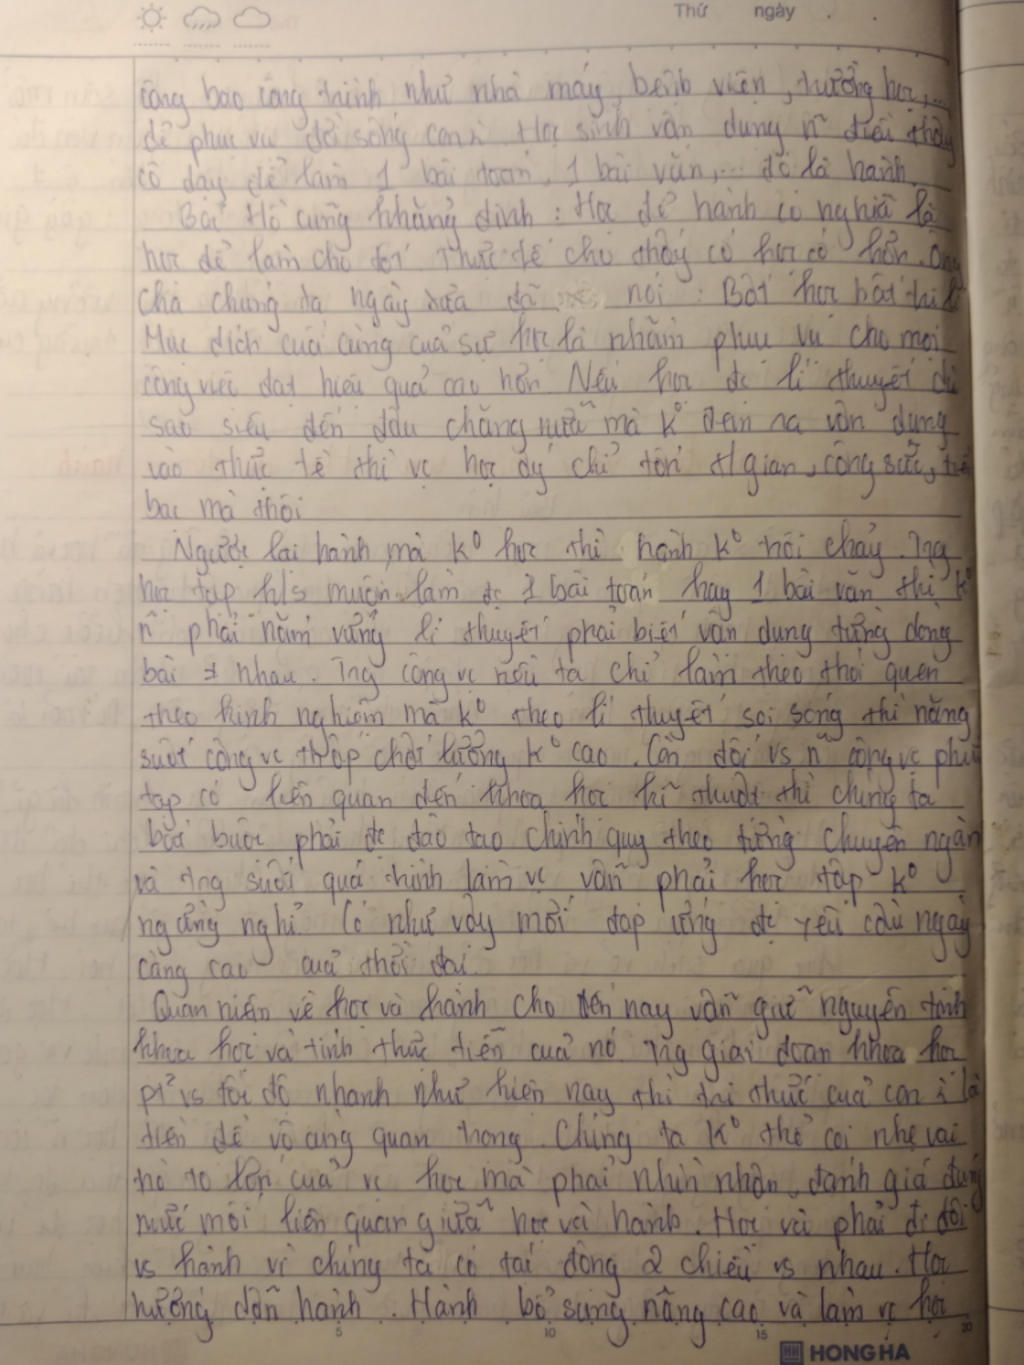 Thứ ngày . .
công bao công trình như nhà máy, bệnh viện, trường học,...
để phục vụ đời sống con ì. Học sinh vận dụng n~ điều thầy
cô dạy để làm 1 bài toán, 1 bài văn,... đó là hành.
Bác Hồ cũng khẳng định : Học để hành có nghĩa là
học để làm cho tốt. Thực tế cho thấy có học có hơn. Ông
cha chúng ta ngày xưa đã nói : Bất học bất tri lí
Mục đích cuối cùng của sự học là nhằm phục vụ cho mọi
công việc đạt hiệu quả cao hơn. Nếu học đc lí thuyết dù
cao siêu đến đâu chăng nữa mà k° đem ra vận dụng
vào thực tế thì vc học ấy chỉ tốn tgian, công sức, tiền
bạc mà thôi
Ngược lại hành mà k° học thì hành k° trôi chảy. Trg
học tập h/s muốn làm đc 1 bài toán hay 1 bài văn thì k°
n~ phải nắm vững lí thuyết phải biết vận dụng từng dạng
bài ≠ nhau. Trg công vc nếu ta chỉ làm theo thói quen
theo kinh nghiệm mà k° theo lí thuyết soi sáng thì năng
suất công vc thấp chất lượng k° cao. Còn đối vs n~ công vc phức
tạp có liên quan đến khoa học kĩ thuật thì chúng ta
bắt buộc phải đc đào tạo chính quy theo từng chuyên ngàn
và trg suốt quá trình làm vc vẫn phải học tập k°
ngừng nghỉ. Có như vậy mới đáp ứng đc yêu cầu ngày
càng cao của thời đại.
Quan niệm về học và hành cho đến nay vẫn giữ nguyên tính
khoa học và tính thực tiễn của nó. Trg giai đoạn khoa học
pt' vs tốc độ nhanh như hiện nay thì tri thức của con ì là
tiền đề vô cùng quan trọng. Chúng ta k° thể coi nhẹ vai
trò to lớn của vc học mà phải nhìn nhận, đánh giá đúng
mức mối liên quan giữa học và hành. Học và phải đi đôi
vs hành vì chúng ta có tác động 2 chiều vs nhau. Học
hướng dẫn hành. Hành bổ sung nâng cao và làm vc học
5 10 15 20
HH HONG HA